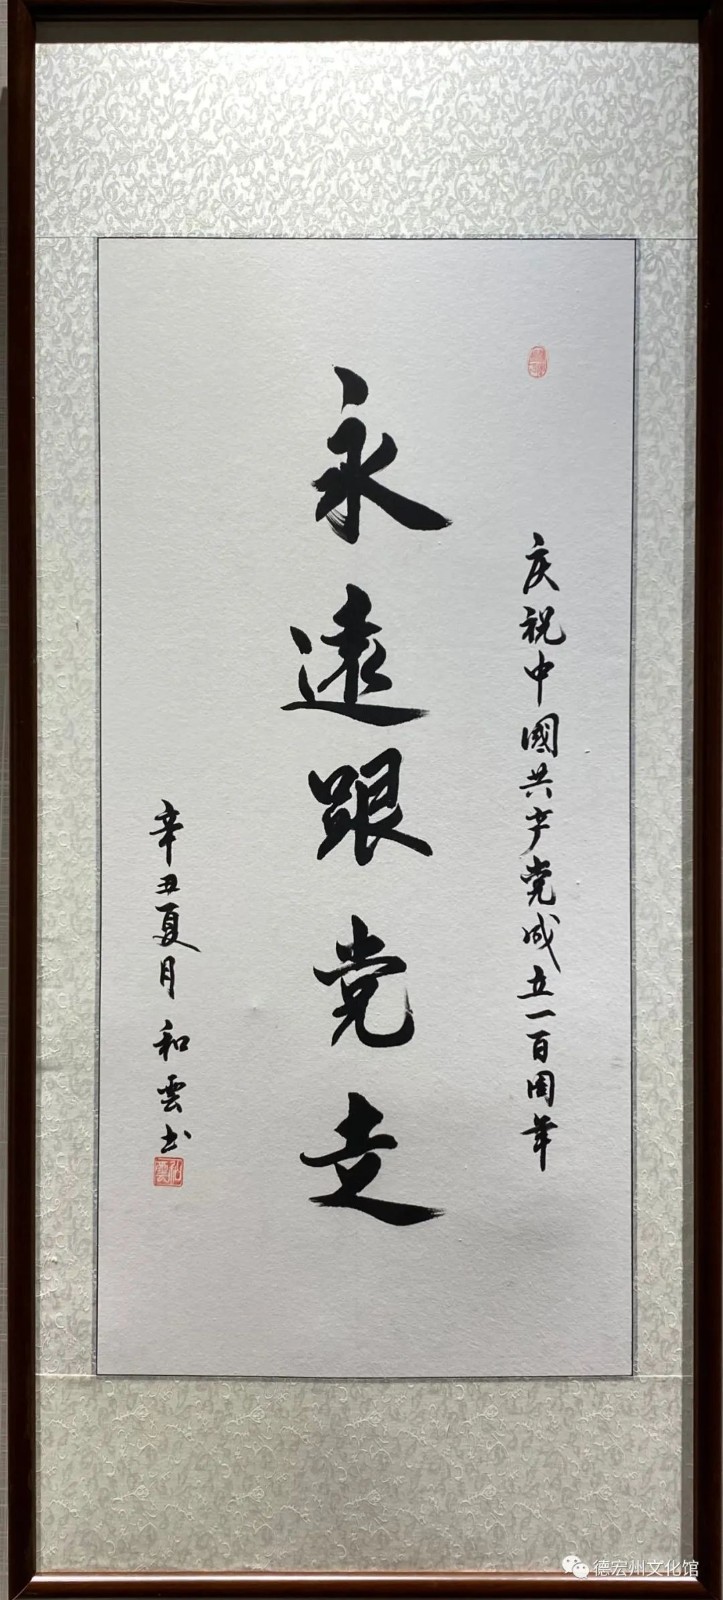 庆祝中國共产党成立一百周年
永遠跟党走
辛丑夏月 和雲书
德宏州文化馆